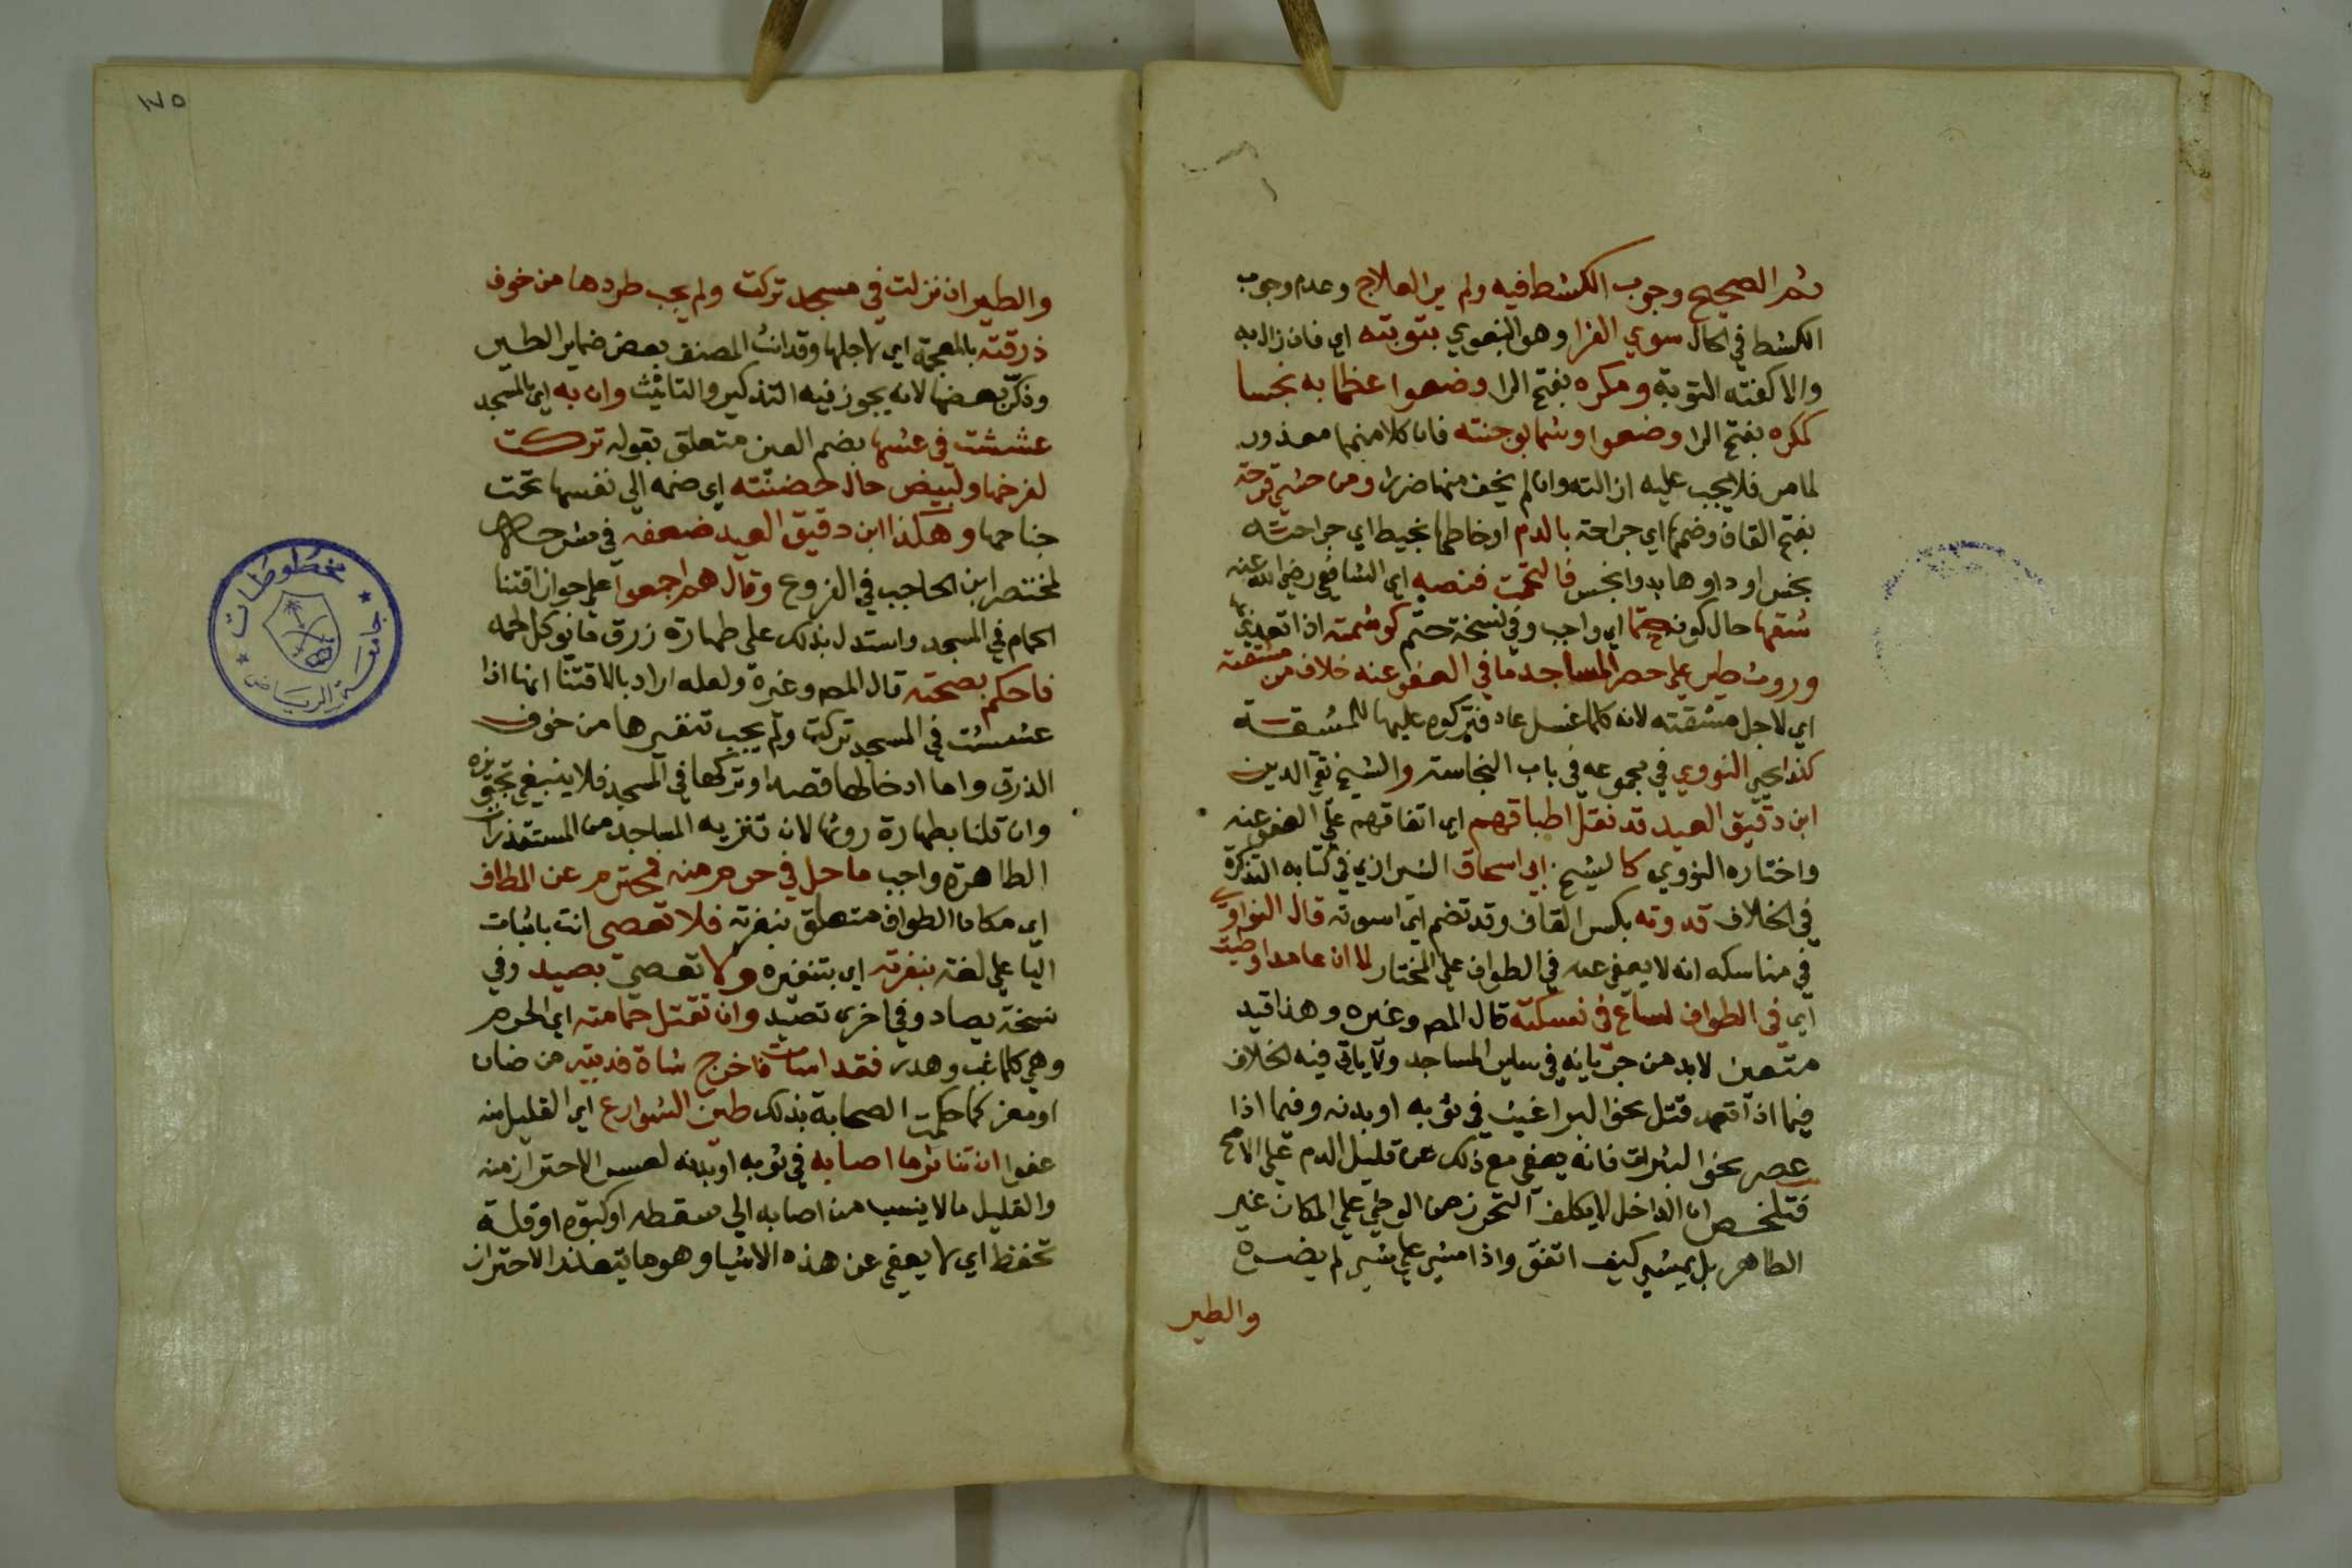 ثم الصحيح وجوب الكشط فيه ولم ير العلاج وعدم وجوب
الكشط في الحال سوي الفرا وهو البغوي بتوبته اي فان زال به
والا كفته التوبة ومكره بفتح الرا وضعوا عظما به نجسا
كمكره بفتح الرا وضعوا وشما بوجنته فان كلا منهما معذور
لما مر فلا يجب عليه ازالته وان لم يخف منها ضررا ومن حشي قرحة
بفتح القاف وضمها اي جراحة بالدم او خاطها بخيط اي جراحته
نجس او داوها بدوا نجس فالتحمت فنصه اي الشافعي رضي الله عنه
شقها حال كونه حتما اي واجب وفي نسخة حتم كوشمته اذا تعدي بها
وروث طير علي حصر المساجد ما في العفو عنه خلاف من مشقته
اي لاجل مشقته لانه كلما غسل عاد فتركوه عليها للمشقة
كذا يحيي النووي في مجموعه في باب النجاسة والشيخ تقي الدين
ابن دقيق العيد قد نقل اطباقهم اي اتفاقهم علي العفو عنه
واختاره النووي كالشيخ ابي اسحاق الشيرازي في كتابه التذكرة
في الخلاف قدوته بكسر القاف وقد تضم اي اسوته قال النواوي
في مناسكه انه لا يعفي عنه في الطواف علي المختار لما ان عامدا وطيت
اي في الطواف لساع في نسكته قال المص وغيره وهذا قيد
متعين لابد من جريانه في ساير المساجد ولا ياتي فيه الخلاف
فيما اذا تعمد قتل نحو البراغيث في ثوبه او بدنه وفيما اذا
عصر نحو البثرات فانه يعفي مع ذلك عن قليل الدم علي الاصح
فتلخص ان الداخل لا يكلف التحرز من الوطي علي المكان غير
الطاهر بل يمشي كيف اتفق واذا مشي علي شي لم يضره
والطير
١٧٥
والطير ان نزلت في مسجد تركت ولم يجب طردها من خوف
ذرقته بالمعجمة اي لاجلها وقد انث المصنف بعض ضماير الطير
وذكر بعضها لانه يجوز فيه التذكير والتانيث وان به اي بالمسجد
عششت في عشها بضم العين متعلق بقوله تركت
لفرخها ولبيض حال حضنته اي ضمه الي نفسها تحت
جناحها وهكذا ابن دقيق العيد ضعفه في شرحه
لمختصر ابن الحاجب في الفروع وقال هم اجمعوا علي جواز اقتنا
الحمام في المسجد واستدل بذلك علي طهارة زرق مايوكل لحمه
فاحكم بصحته قال المص وغيره ولعله اراد بالاقتنا انها اذا
عششت في المسجد تركت ولم يجب تنفيرها من خوف
الذرق واما ادخالها قصدا وتركها في المسجد فلا ينبغي تجويزه
وان قلنا بطهارة روثها لان تنزيه المساجد من المستقذرات
الطاهرة واجب ما حل في حرم منه فمحترم عن المطاف
اي مكان الطواف متعلق بنفرته فلا تعصي انت باثبات
اليا علي لغة بنفرته اي بتنفيره ولا تعصي بصيد وفي
نسخة يصاد وفي اخري تصيد وان تقتل حمامته اي الحرم
وهي كلما عب وهدر فقد اسات فاخرج شاة فديته من ضان
او معز كما حكمت الصحابة بذلك طين الشوارع اي القليل منه
عفوا ان تناثر ما اصابه في ثوبه او بدنه لعسر الاحتراز منه
والقليل ما لا ينسب من اصابه الي سقطه او كبوه او قلة
تحفظ اي لا يعفي عن هذه الاشيا وهو ما يتعذر الاحتراز
مخطوطات
جامعة الرياض